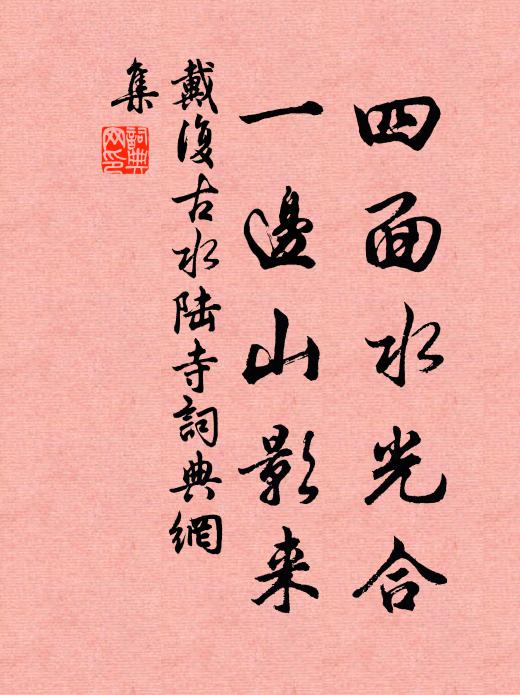 四面水光合
一邊山影来
戴復古水陆寺詞典網
集
詞典網印